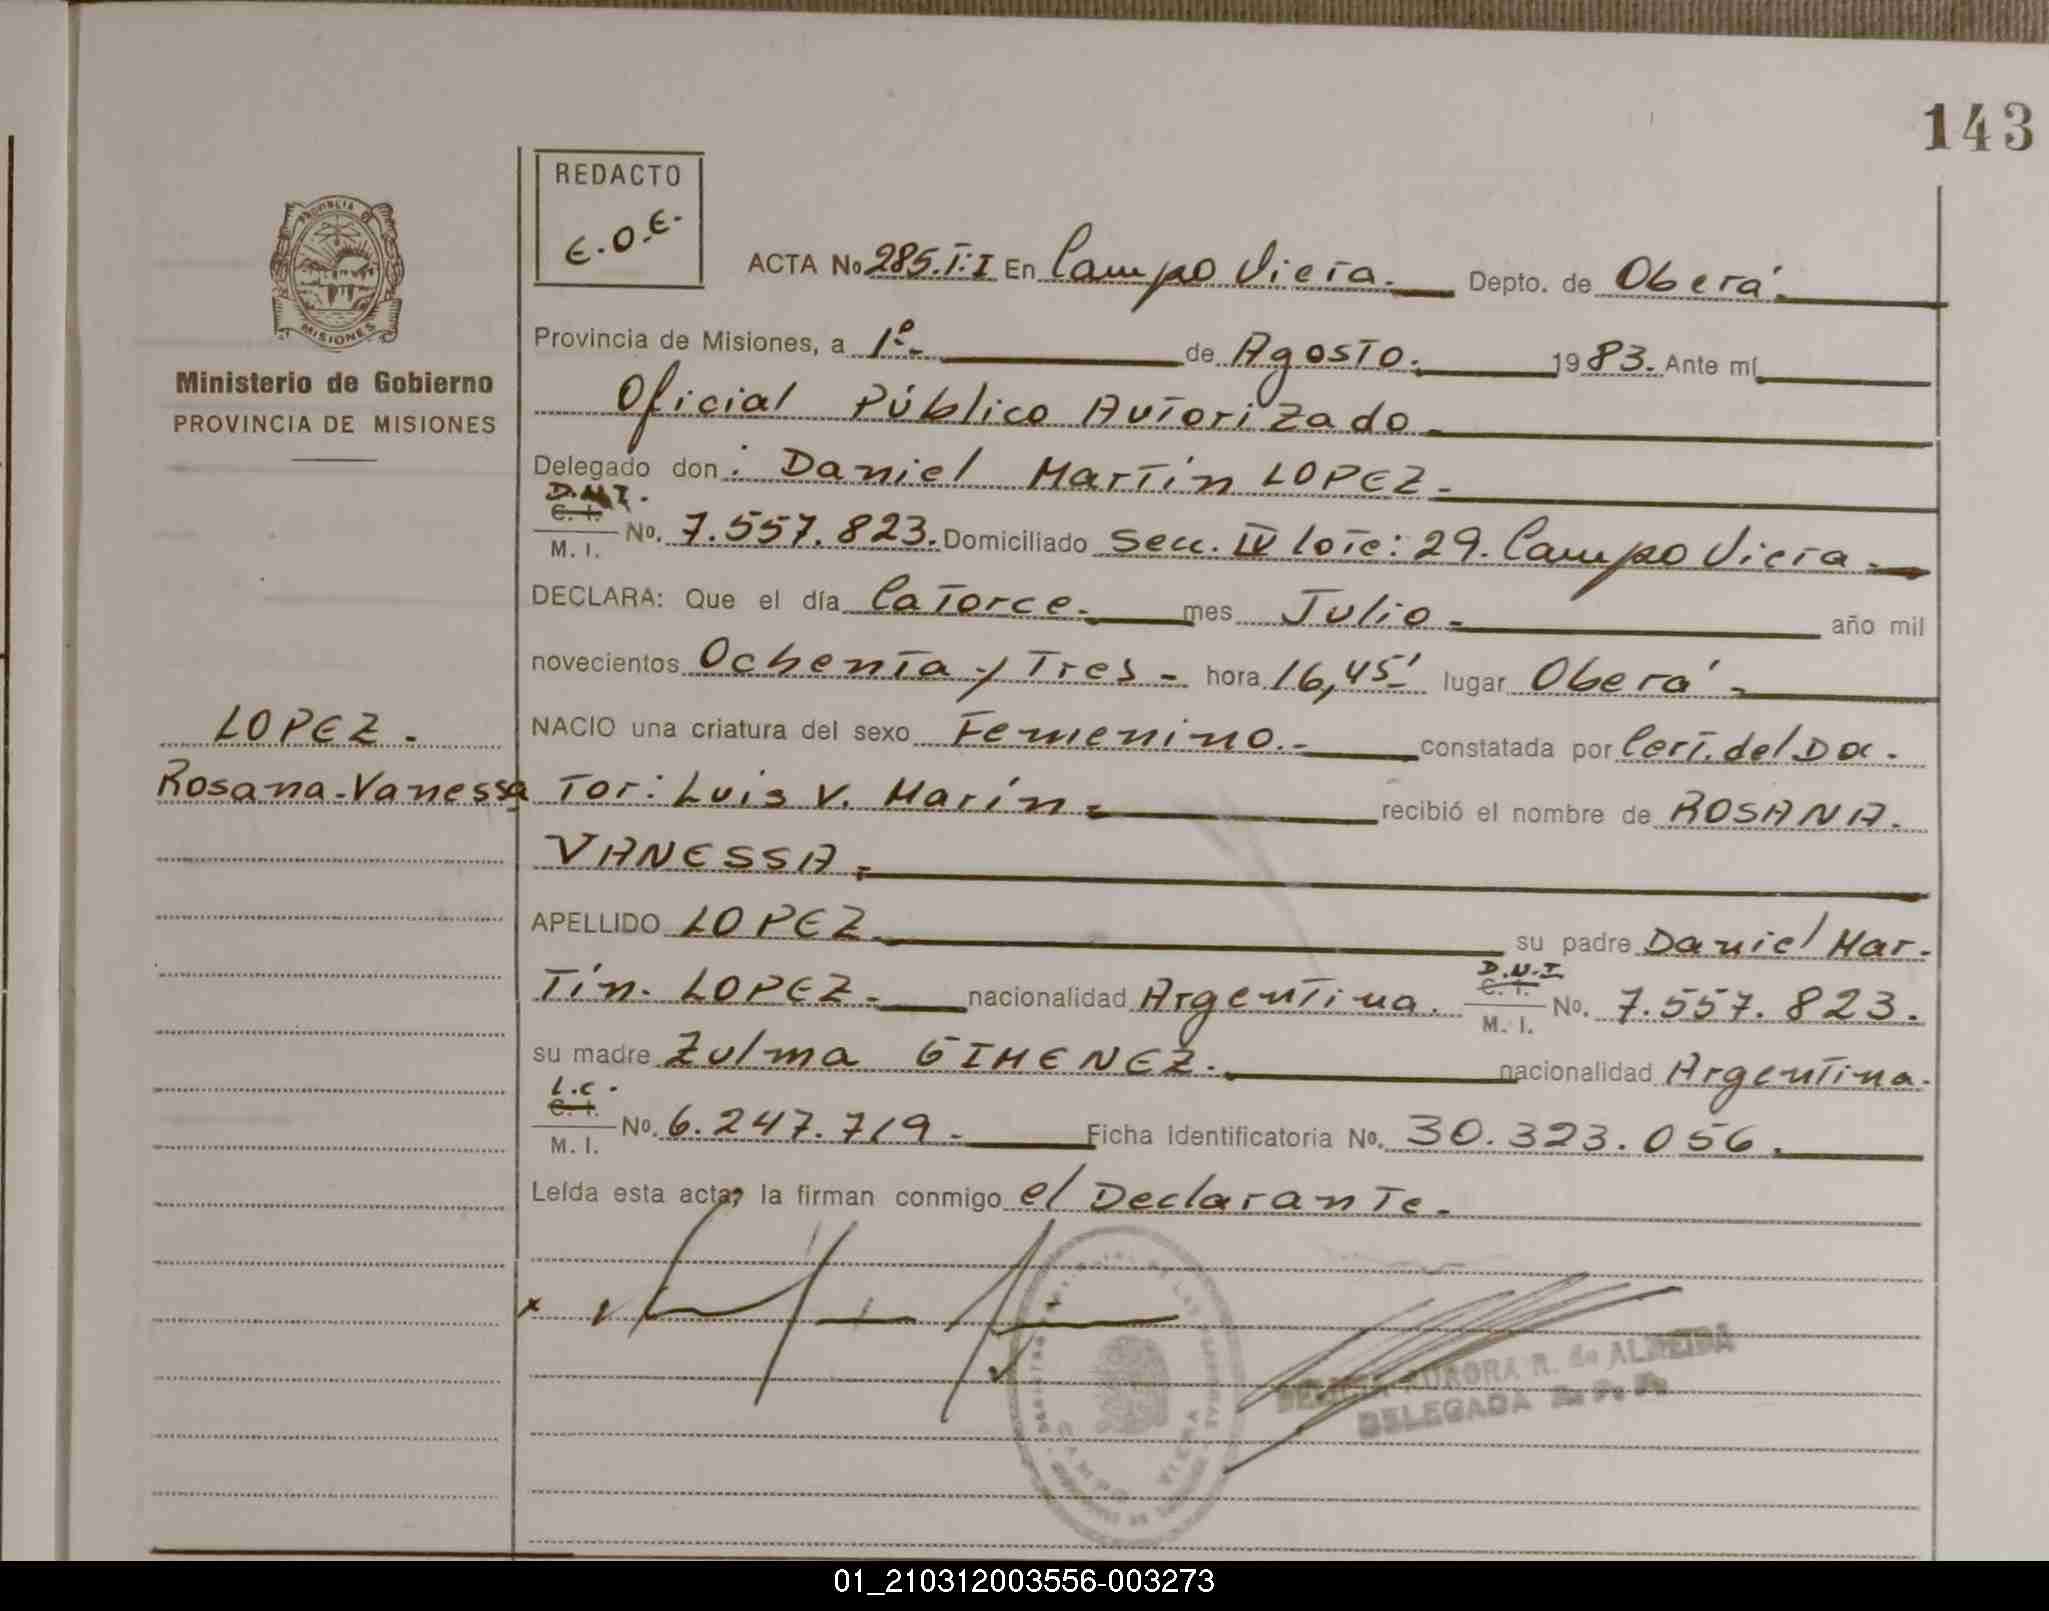 143
REDACTO
E.O.E.
PROVINCIA DE
MISIONES
Ministerio de Gobierno
PROVINCIA DE MISIONES
ACTA No 285.T:I En Campo Viera. Depto. de Oberá.
Provincia de Misiones, a 1º. de Agosto. 1983. Ante mí
Oficial Público Autorizado
Delegado don: Daniel Martín LOPEZ.
D.N.I.
C. I.
M. I. No. 7.557.823. Domiciliado Secc. IV lote: 29. Campo Viera.
DECLARA: Que el día Catorce. mes Julio año mil
novecientos Ochenta y Tres - hora 16,45' lugar Oberá
LOPEZ.
NACIO una criatura del sexo Femenino. constatada por Cert. del Doc.
Rosana-Vanessa
Tor: Luis V. Marín recibió el nombre de ROSANA.
VANESSA.
APELLIDO LOPEZ su padre Daniel Mar.
Tín. LOPEZ. nacionalidad Argentina. D.N.I. C. I. M. I. No. 7.557.823.
su madre Zulma GIMENEZ. nacionalidad Argentina.
L.C.
C. I.
M. I. No. 6.247.719. Ficha identificatoria No. 30.323.056.
Leída esta acta, la firman conmigo el Declarante.
AURORA R. de ALMEIDA
DELEGADA R. P. P.
CAMPO VIERA
01_210312003556-003273